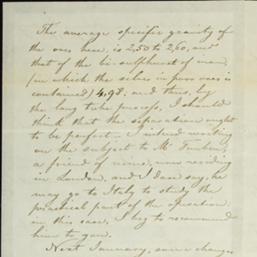 The average specific gravity of
the ores here, is 2,50 to 2,60, and
that of the bi-sulphuret of iron,
(in which the silver in pure ores is
contained) 4,98. and thus, by
the long tube process, I should
think that the separation ought
to be perfect. I intend writing
on the subject to Mr
a friend of mine, now residing
in London, and I dare say, he
may go to Italy to study the
practical part of the operation.
in this case, I beg to recommend
him to you.
Next January, some changes